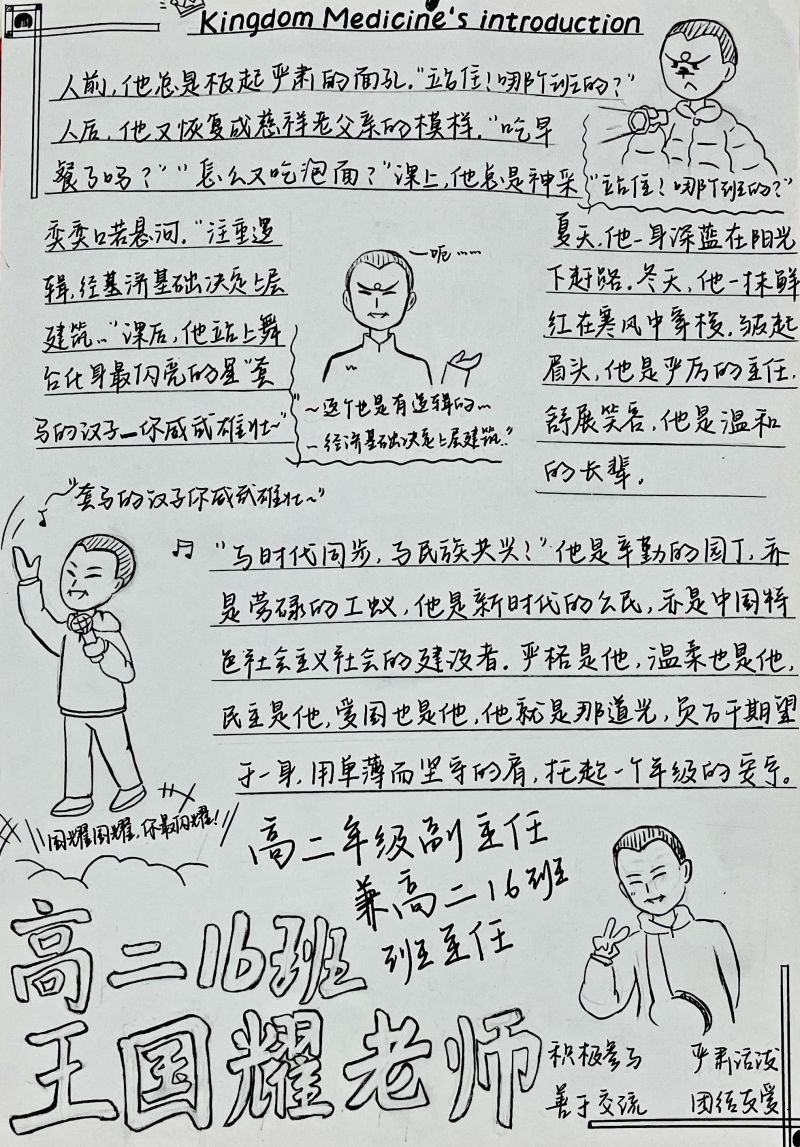 Kingdom Medicine's introduction
人前，他总是板起严肃的面孔。“站住！哪个班的？”
人后，他又恢复成慈祥老父亲的模样。“吃早
餐了吗？”“怎么又吃泡面？”课上，他总是神采
“站住！哪个班的？”
奕奕口若悬河。“注重逻
辑，经基济基础决定上层
建筑..”课后，他站上舞
台化身最闪亮的星“套
马的汉子—你威武雄壮~”
~呃……
“~这个也是有逻辑的~
~经济基础决定上层建筑.”
夏天，他一身深蓝在阳光
下赶路。冬天，他一抹鲜
红在寒风中穿梭。皱起
眉头，他是严厉的主任，
舒展笑容，他是温和
的长辈。
~“套马的汉子你威武雄壮~”
“与时代同步，与民族共兴？”他是辛勤的园丁，亦
是劳碌的工蚁，他是新时代的公民，亦是中国特
色社会主义社会的建设者。严格是他，温柔也是他，
民主是他，爱国也是他，他就是那道光，负万千期望
于一身，用单薄而坚守的肩，托起一个年级的安宁。
国耀国耀，你最闪耀！
高二年级副主任
兼高二16班
班主任
高二16班
王国耀老师
积极参与 严肃活泼
善于交流 团结友爱